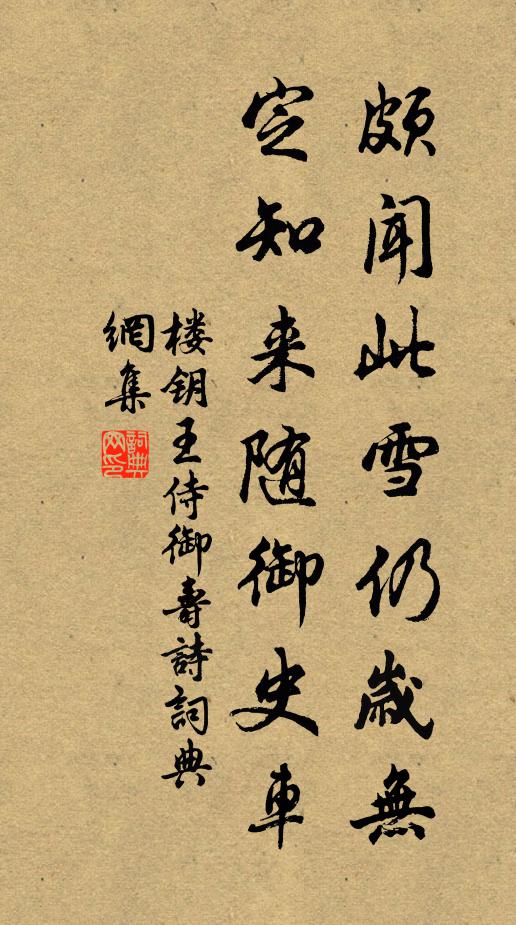 頗聞此雪仍歲無
定知来随御史車
楼钥王侍御壽詩詞典
網集
詞典网印